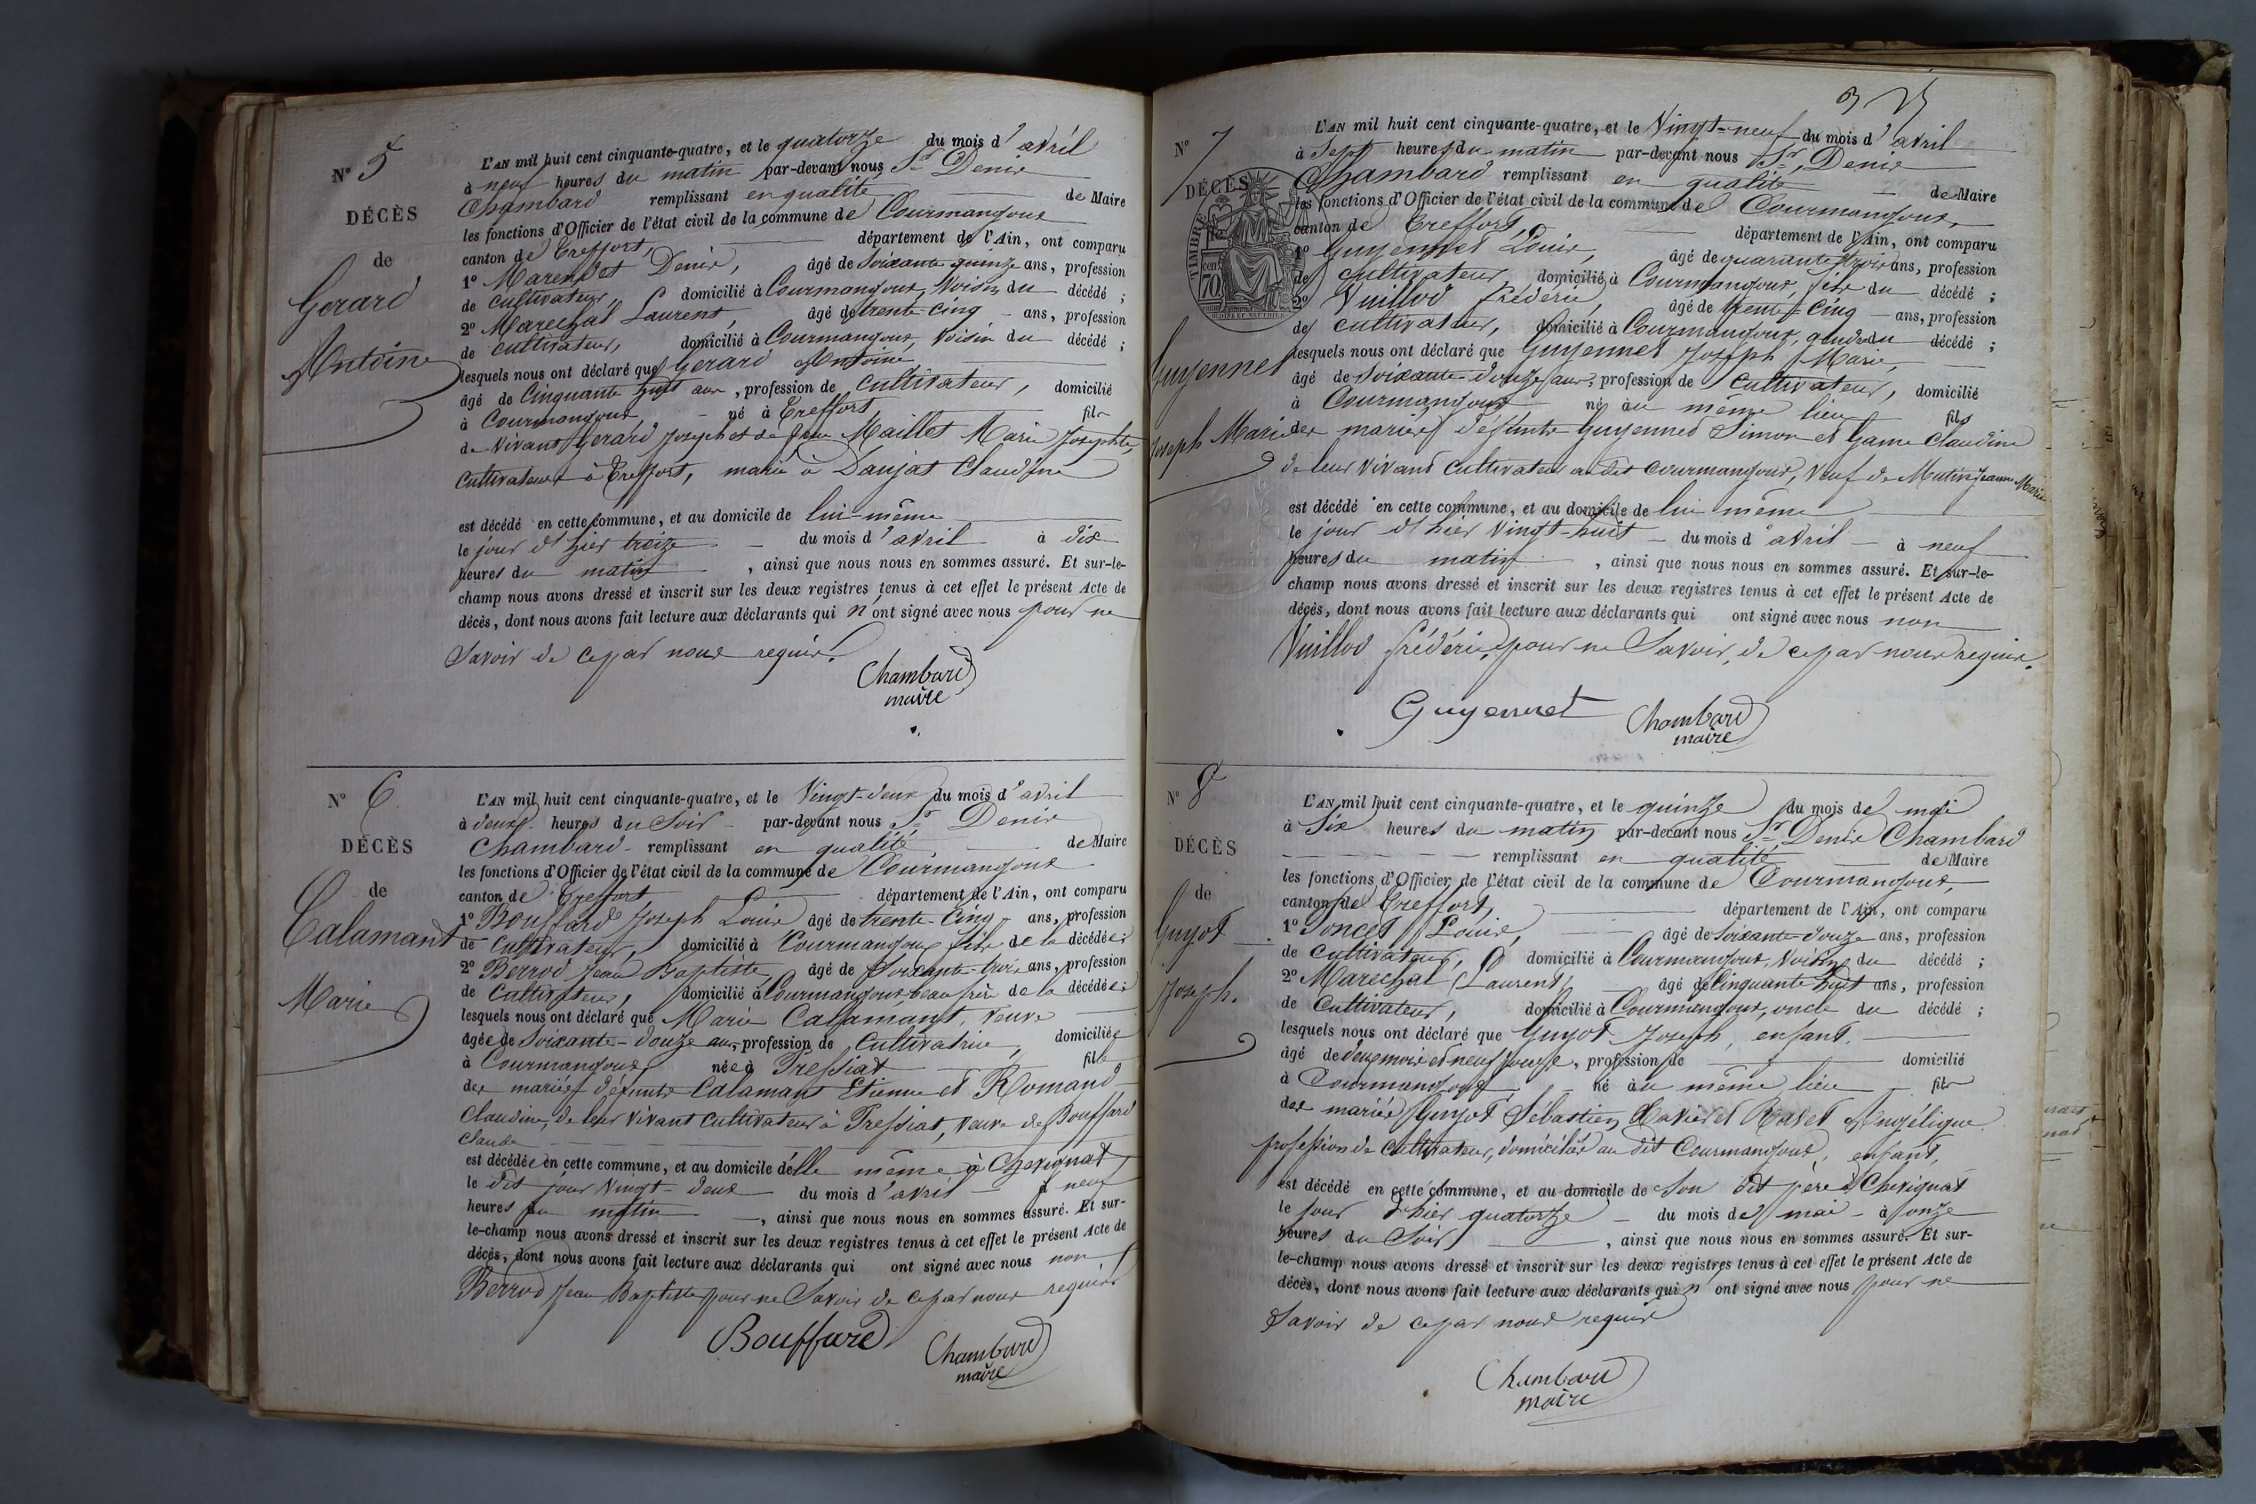 N° 5
DÉCÈS
de
Gerard
Antoine
L'AN mil huit cent cinquante-quatre, et le quatorze du mois d'avril
à neuf heures du matin par-devant nous Sr Denis
Chambard remplissant en qualité de Maire
les fonctions d'Officier de l'état civil de la commune de Courmangoux
canton de Treffort, département de l'Ain, ont comparu
1° Marendet Denis, âgé de soixante quinze ans, profession
de cultivateur, domicilié à Courmangoux, voisin du décédé ;
2° Marechal Laurent, âgé de trente-cinq ans, profession
de cultivateur, domicilié à Courmangoux, voisin du décédé ;
lesquels nous ont déclaré que Gerard Antoine
âgé de cinquante huit ans, profession de cultivateur, domicilié
à Courmangoux né à Treffort fils
de vivant Gerard Joseph et de feue Maillet Marie Josephte,
cultivateur à Treffort, marié à Danjat Claudine
est décédé en cette commune, et au domicile de lui-même
le jour d'hier treize du mois d'avril à dix
heures du matin, ainsi que nous nous en sommes assuré. Et sur-le-
champ nous avons dressé et inscrit sur les deux registres tenus à cet effet le présent Acte de
décès, dont nous avons fait lecture aux déclarants qui n'ont signé avec nous pour ne
savoir de ce par nous requis.
Chambard
maire
N° 6
DÉCÈS
de
Calamant
Marie
L'AN mil huit cent cinquante-quatre, et le vingt-deux du mois d'avril
à deux heures du soir par-devant nous Sr Denis
Chambard remplissant en qualité de Maire
les fonctions d'Officier de l'état civil de la commune de Courmangoux
canton de Treffort département de l'Ain, ont comparu
1° Bouffard Joseph Louis âgé de trente-cinq ans, profession
de cultivateur, domicilié à Courmangoux fils de la décédée ;
2° Berrod Jean Baptiste, âgé de soixante-trois ans, profession
de cultivateur, domicilié à Courmangoux, beau frère de la décédée ;
lesquels nous ont déclaré que Marie Calamant, veuve
âgée de soixante-douze ans, profession de cultivatrice, domiciliée
à Courmangoux, née à Pressiat fille
des mariés défunts Calamant Etienne et Romand
Claudine, de leur vivant cultivateur à Pressiat, veuve de Bouffard
Claude
est décédée en cette commune, et au domicile d'elle même à Chevignat,
le dit jour vingt-deux du mois d'avril à neuf
heures du matin, ainsi que nous nous en sommes assuré. Et sur-
le-champ nous avons dressé et inscrit sur les deux registres tenus à cet effet le présent Acte de
décès, dont nous avons fait lecture aux déclarants qui ont signé avec nous non
Berrod Jean Baptiste pour ne savoir de ce par nous requis
Bouffard
Chambard
maire
N° 7
DÉCÈS
TIMBRE
70
Guyennet
Joseph Marie
L'AN mil huit cent cinquante-quatre, et le vingt-neuf du mois d'avril
à sept heures du matin par-devant nous Sr Denis
Chambard remplissant en qualité de Maire
les fonctions d'Officier de l'état civil de la commune de Courmangoux,
canton de Treffort, département de l'Ain, ont comparu
1° Guyennet Louis, âgé de quarante trois ans, profession
de cultivateur, domicilié à Courmangoux, fils du décédé ;
2° Vuillod Frédéric, âgé de trente-cinq ans, profession
de cultivateur, domicilié à Courmangoux, gendre du décédé ;
lesquels nous ont déclaré que Guyennet Joseph Marie,
âgé de soixante-douze ans, profession de cultivateur, domicilié
à Courmangoux né au même lieu fils
des mariés défunts Guyennet Simon et Game Claudine
de leur vivant cultivateur au dit Courmangoux, veuf de Mutin Jeanne Marie
est décédé en cette commune, et au domicile de lui même
le jour d'hier vingt-huit du mois d'avril à neuf
heures du matin, ainsi que nous nous en sommes assuré. Et sur-le-
champ nous avons dressé et inscrit sur les deux registres tenus à cet effet le présent Acte de
décès, dont nous avons fait lecture aux déclarants qui ont signé avec nous non
Vuillod Frédéric, pour ne savoir, de ce par nous requis.
Guyennet
Chambard
maire
N° 8
DÉCÈS
de
Guyot
Joseph.
L'AN mil huit cent cinquante-quatre, et le quinze du mois de mai
à six heures du matin par-devant nous Sr Denis Chambard
remplissant en qualité de Maire
les fonctions d'Officier de l'état civil de la commune de Courmangoux,
canton de Treffort, département de l'Ain, ont comparu
1° Poncet Louis, âgé de soixante-douze ans, profession
de cultivateur, domicilié à Courmangoux, voisin du décédé ;
2° Marechal Laurent, âgé de cinquante huit ans, profession
de cultivateur, domicilié à Courmangoux, oncle du décédé ;
lesquels nous ont déclaré que Guyot Joseph, enfant,
âgé de deux mois et neuf jours, profession de domicilié
à Courmangoux, né au même lieu fils
des mariés Guyot Sébastien Xavier et Ravet Angélique
profession de cultivateur, domiciliés au dit Courmangoux, enfant,
est décédé en cette commune, et au domicile de son dit père à Chevignat
le jour d'hier quatorze du mois de mai à onze
heures du soir, ainsi que nous nous en sommes assuré. Et sur-
le-champ nous avons dressé et inscrit sur les deux registres tenus à cet effet le présent Acte de
décès, dont nous avons fait lecture aux déclarants qui n'ont signé avec nous pour ne
savoir de ce par nous requis
Chambard
maire